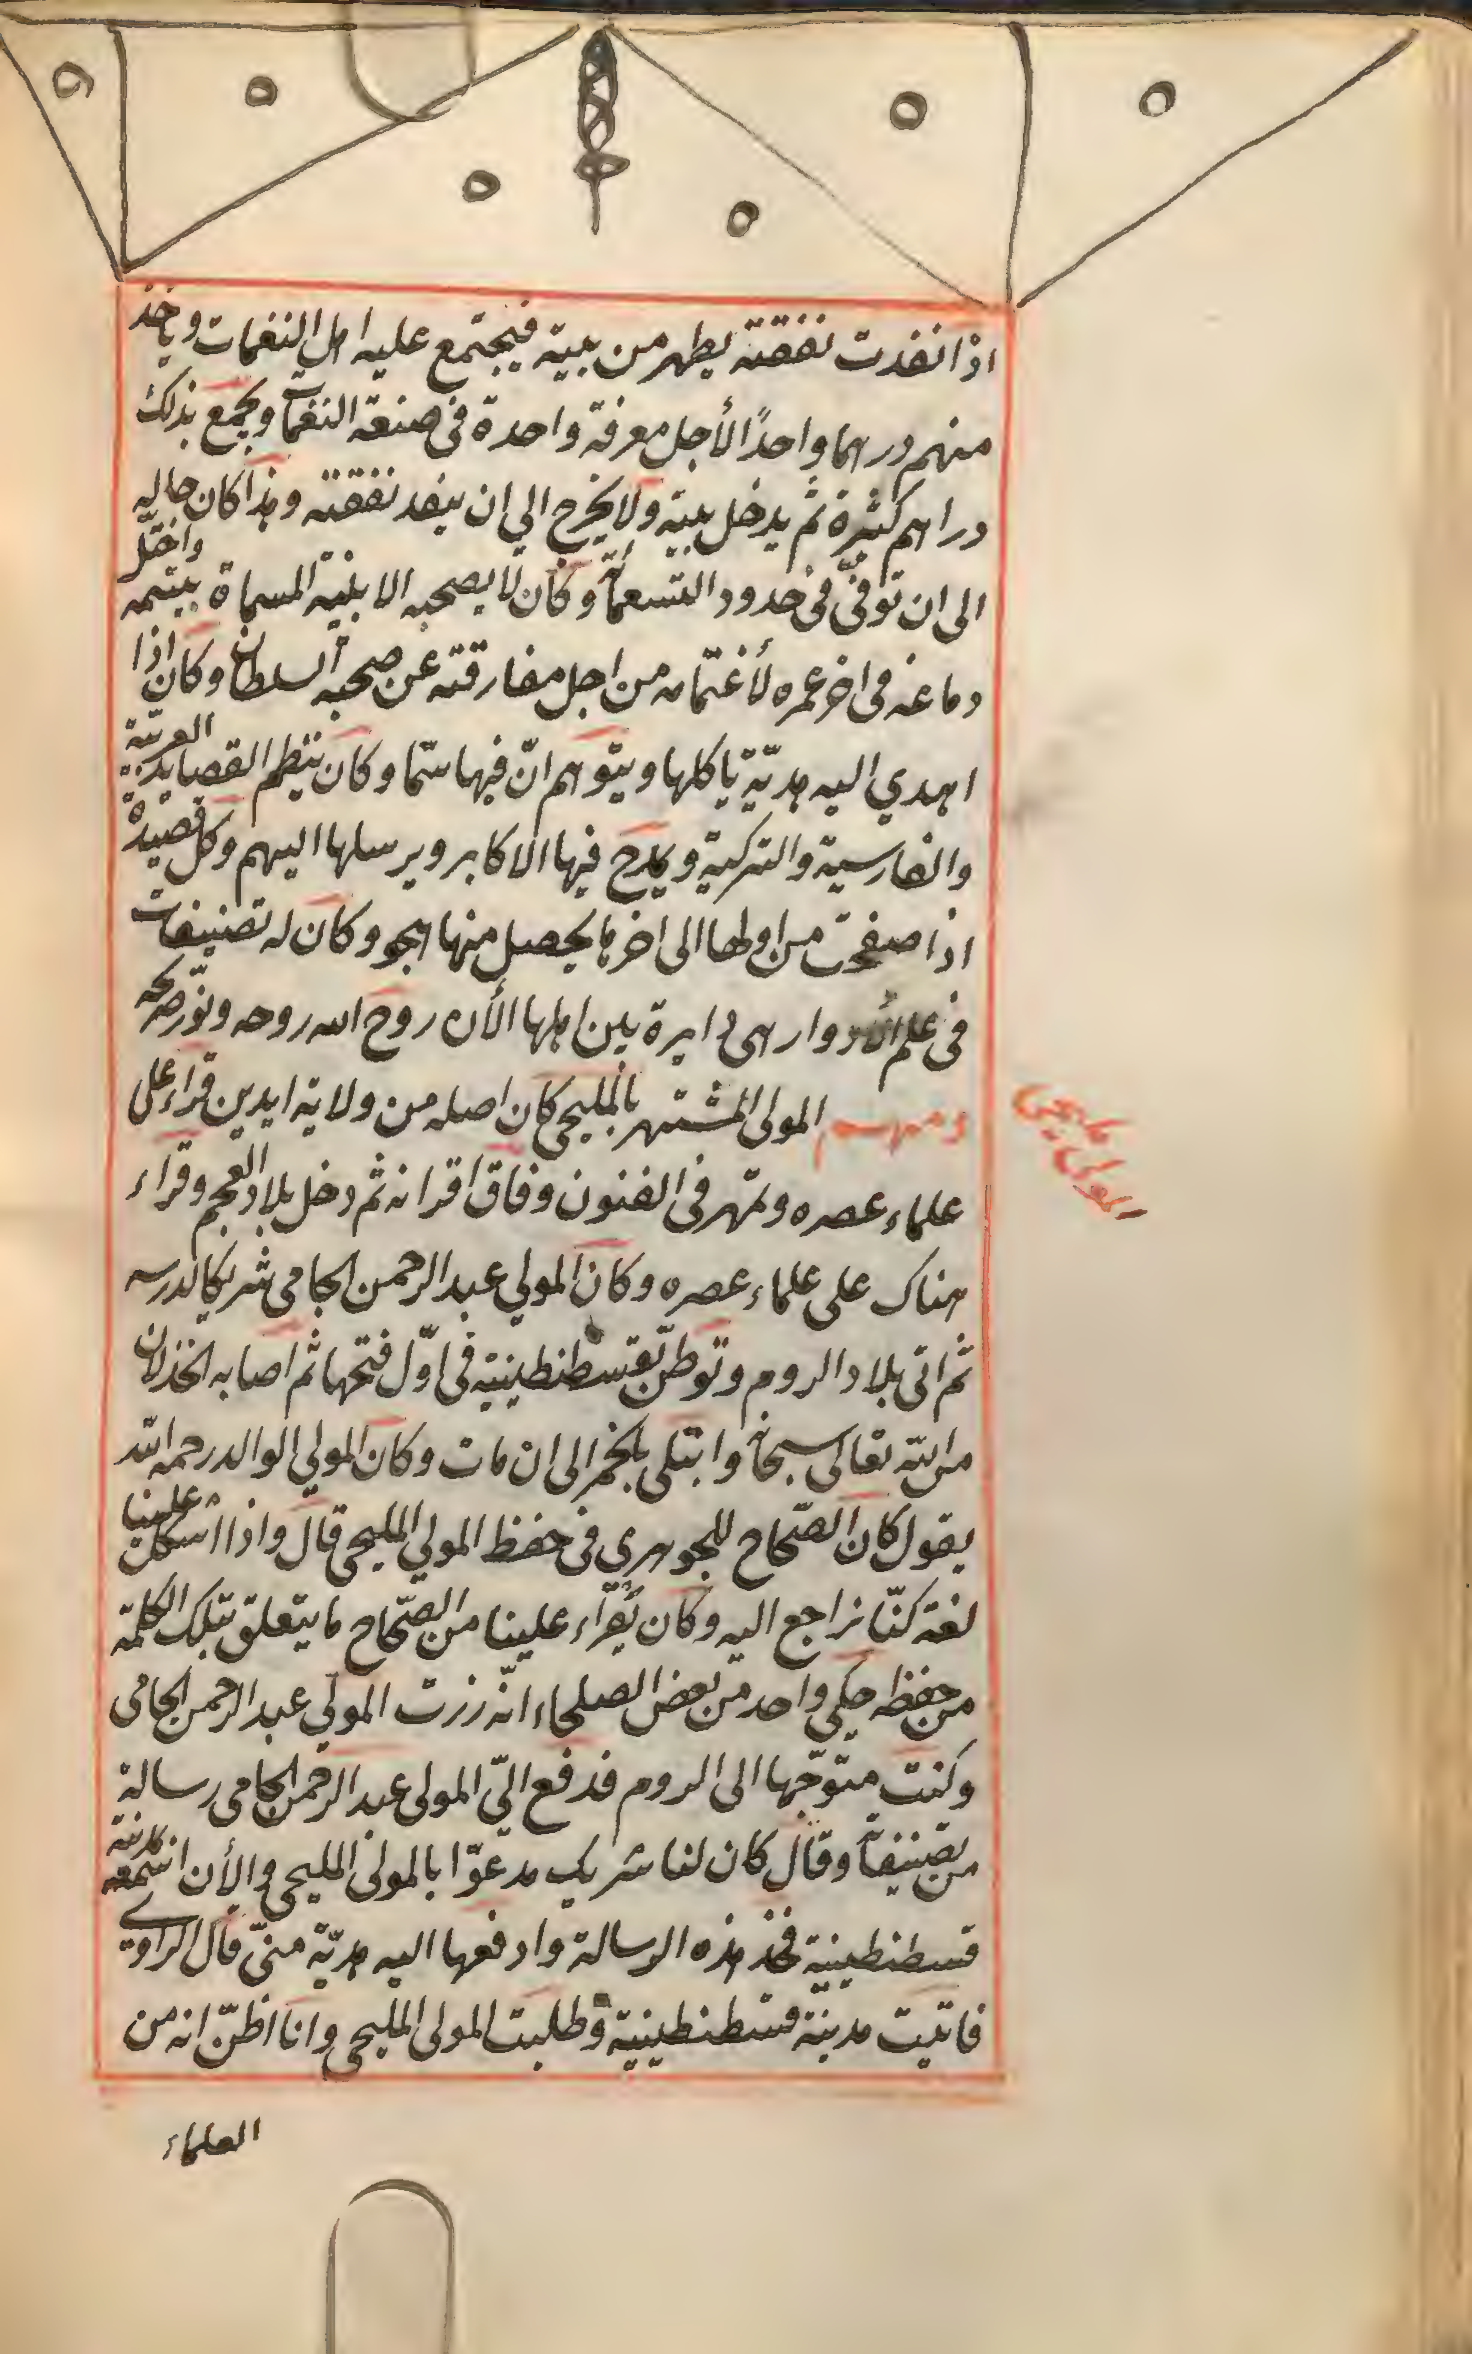 اذا نفدت نفقته يظهر من بيته فيجتمع عليه اهل النغمات وياخذ
منهم درهما واحدًا لأجل معرفة واحدة فى صنعة النغمآت ويجمع بذلك
دراهم كثيرة ثم يدخل بيته ولا يخرج الي ان ينفد نفقته وهذا كان حاله
الى ان توفّى فى حدود التسعمآئة وكان لا يصحبه الا بنية المسماة بيتيمه واختلّ
دماغه فى اخر عمره لأغتمامه من اجل مفارقته عن صحبة السلطان وكان اذا
اهدي اليه هديّة ياكلها ويتوهم انّ فيها سمّا وكان ينظم القصايد العربيّة
والفارسية والتركية ويمدح فيها الاكابر ويرسلها اليهم وكل قصيدة
اذا صفحت من اولها الى اخرها يحصل منها هجو وكان له تصنيفات
فى علم الأدوار هى دايرة بين اهلها الأن روح الله روحه ونوّر ضريحه
ومنهم المولى المشتهر بالمليحى كان اصله من ولاية ايدين قراء على
المولى مليحى
علماء عصره وتمهر فى الفنون وفاق اقرانه ثم دخل بلاد العجم وقراء
هناك على علماء عصره وكان المولي عبد الرحمن الجامى شريكا لدرسه
ثم اتى بلاد الروم وتوطّن بقسطنطينية فى اوّل فتحها ثم اصابه الخذلان
من الله تعالى سبحانه وابتلى بالخمر الى ان مات وكان المولي الوالد رحمه الله
يقول كان الصّحاح للجوهري فى حفظ المولي المليحى قال واذا اشكل علينا
لغة كنّا نراجع اليه وكان يقراء علينا من الصّحاح ما يتعلق بتلك الكلمة
من حفظه حكى واحد من بعض الصلحاء انّه زرت المولي عبد الرحمن الجامى
وكنت متوجّها الى الروم فدفع اليّ المولى عبد الرحمن الجامى رسالة
من تصنيفآته وقال كان لنا شريك مدعوّا بالمولى المليحى والأن اسمعه بمدينة
قسطنطينية فخذ هذه الرسالة وادفعها اليه هديّة منّى قال الراوي
فاتيت مدينة قسطنطينية وطلبت المولى المليحى وانا اظنّ انه من
العلماء